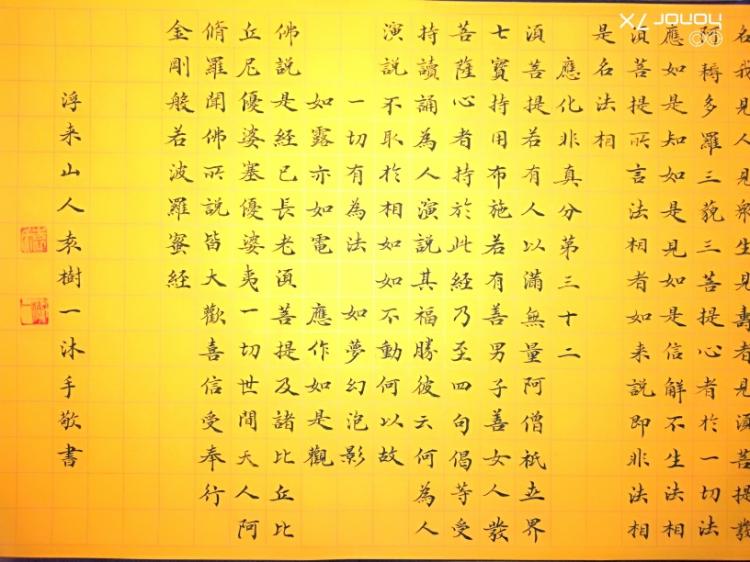 名我見人見眾生見壽者見須菩提發
阿耨多羅三藐三菩提心者於一切法
應如是知如是見如是信解不生法相
須菩提所言法相者如来說即非法相
是名法相
應化非真分第三十二
須菩提若有人以滿無量阿僧祇世界
七寶持用布施若有善男子善女人發
菩薩心者持於此經乃至四句偈等受
持讀誦為人演說其福勝彼云何為人
演說不取於相如如不動何以故
一切有為法 如夢幻泡影
如露亦如電 應作如是觀
佛說是經已長老須菩提及諸比丘比
丘尼優婆塞優婆夷一切世間天人阿
脩羅聞佛所說皆大歡喜信受奉行
金剛般若波羅蜜経
浮来山人袁樹一沐手敬書